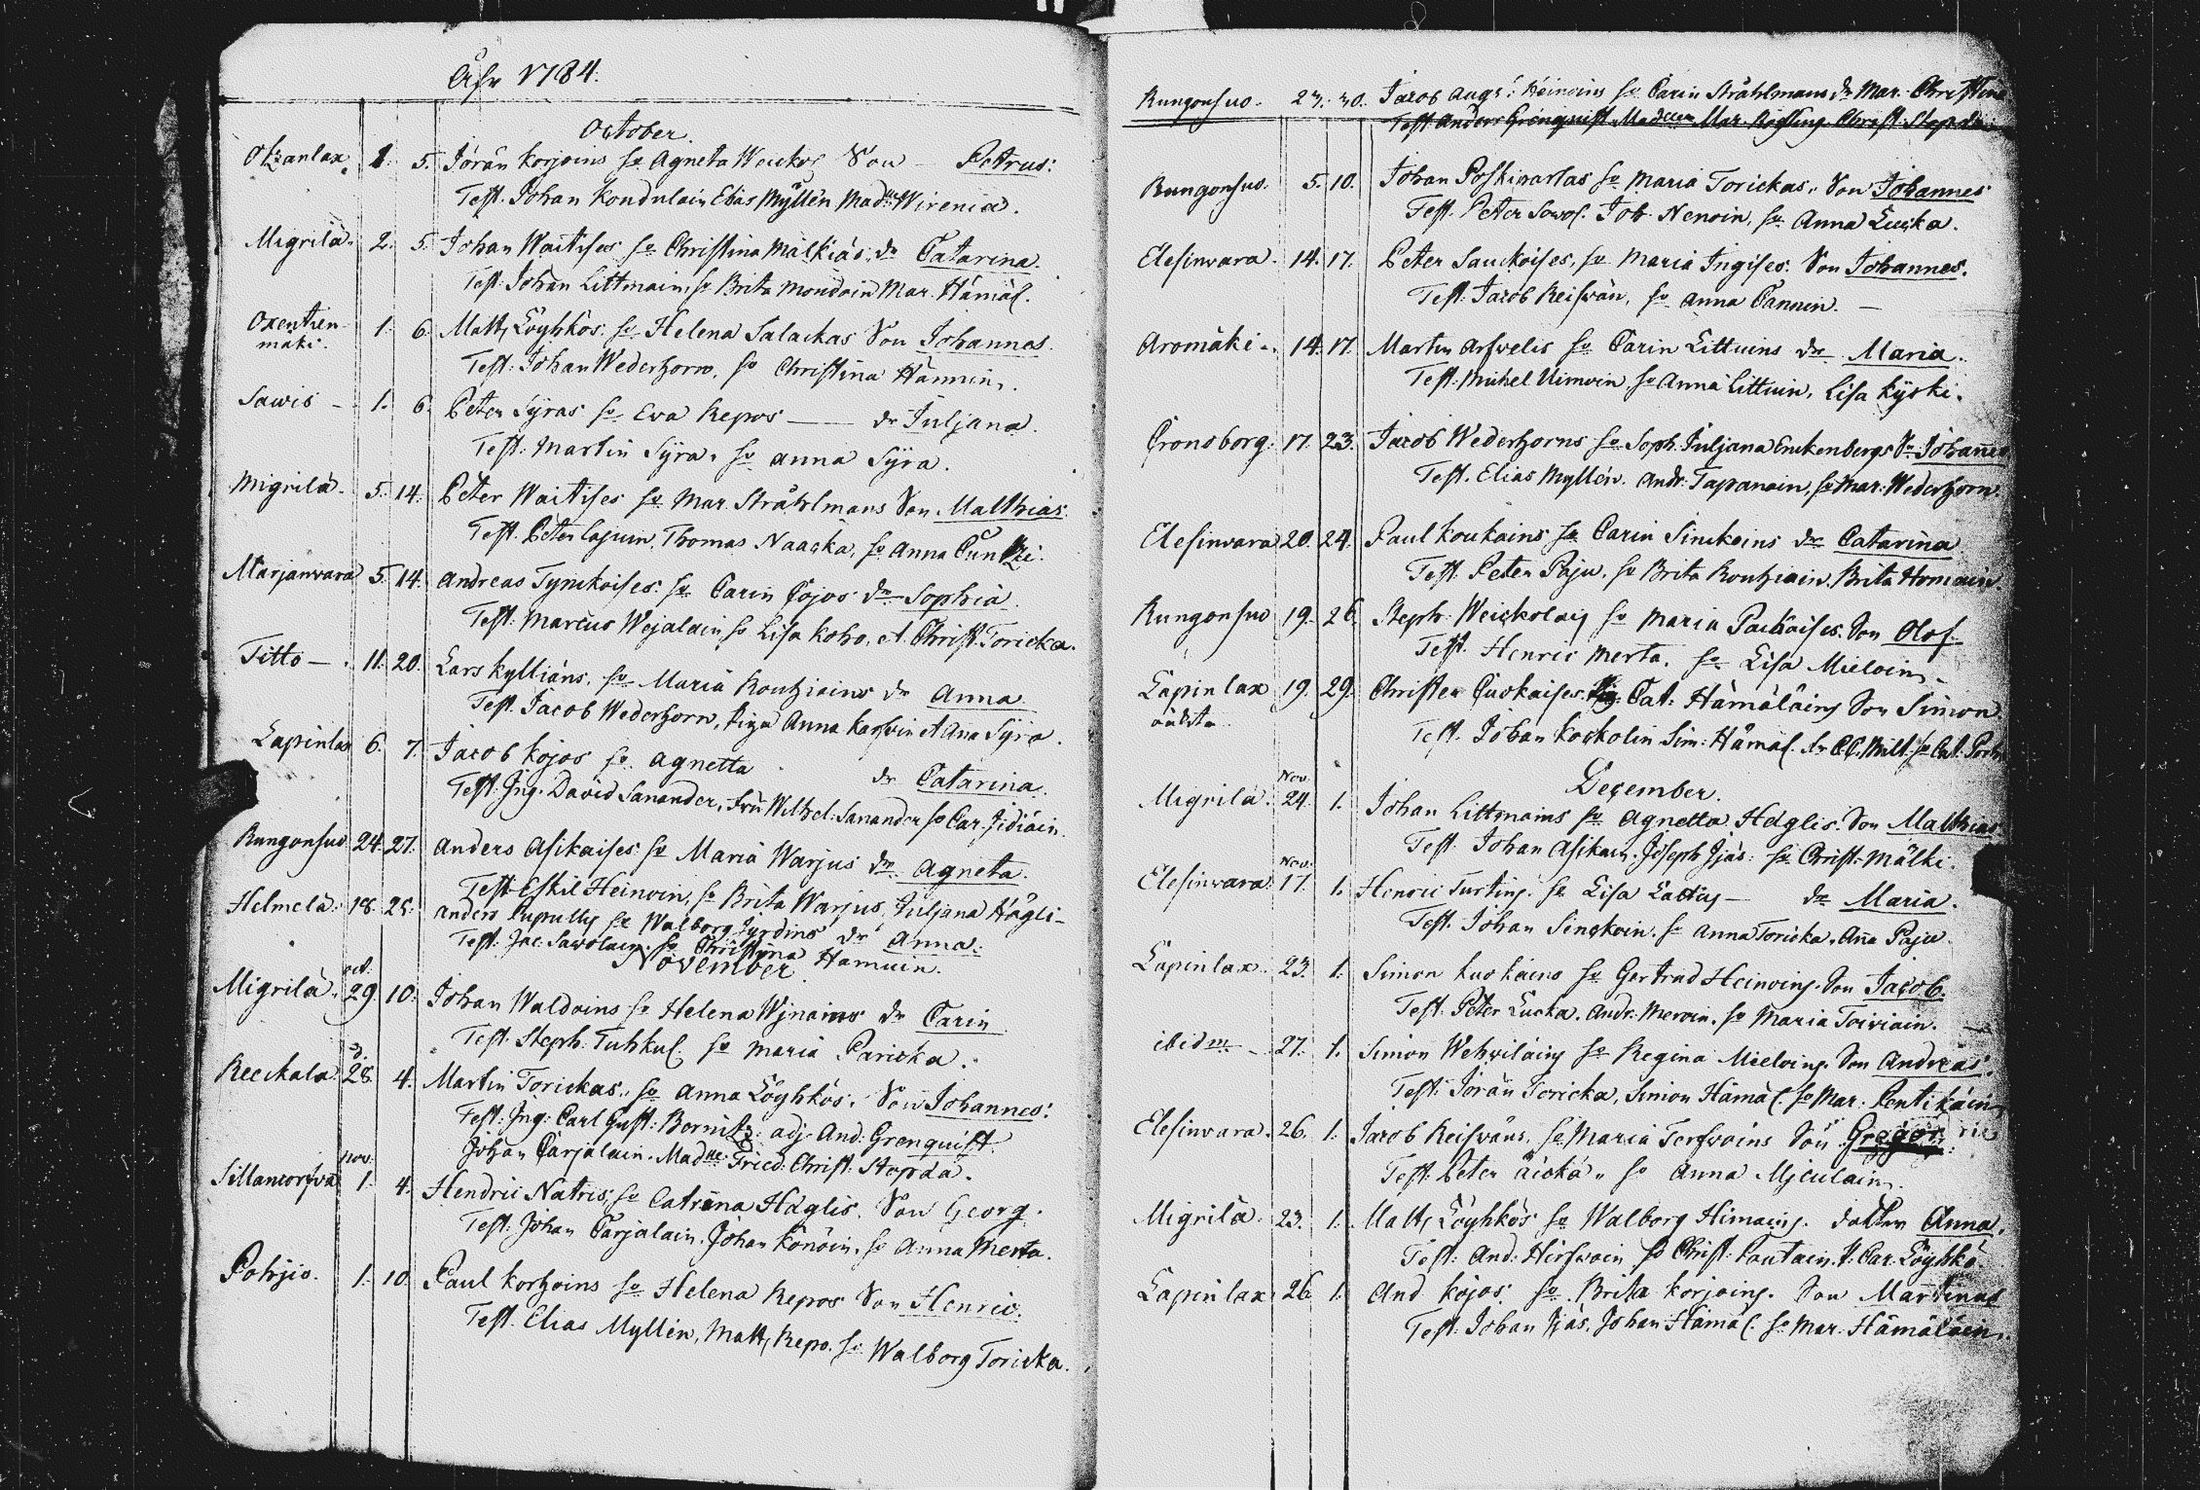 Åhr 1784.
October.
Otsanlax. 1. 5. Jörän Korjoins hu Agneta Weuckos Son Petrus:
Test. Johan Kondulain Elias Myllén Madme Wirenia.
Migrilä. 2. 5. Johan Waitises hu Christina Mälkiäs, dr Catarina.
Test: Johan Littmain, hu Brita Moudoin Mar. Hämäl.
Oxentien- 1. 6. Matts Löyhkös: hu Helena Salackas Son Johannes.
mäki.
Test: Johan Wederhorn, hu Christina Hännin.
Sawis – 1. 6. Peter Syras hu Ewa Repos — dr Juljana.
Test: Martin Syra. hu Anna Syra.
Migrilä. 5. 14. Peter Waitises hu Mar. Stråhlmans Son. Matthias.
Test. Peter Lajuin, Thomas Naacka, hu Anna
Marjanvara 5. 14. Andreas Tynckoises: hu Carin Cojos dr Sophia.
Test: Marcus Wejalain hu Lisa Koho, et Christ. Toricka.
Titto — . 11. 20. Lars Kylliäns, hu Maria Routziains dr Anna
Test. Jacob Wederhorn, Piga Anna Karfvin et Ana Syra.
Lapinlax 6. 7. Jacob Kojos hu Agnetta dr Catarina.
Test. Ing. David Sanander, Fru Wilhel: Sanander hu Car. Jidiäin.
Rungonsuo 24. 27. Anders Asikaises hu Maria Warjus dr. Agneta.
Test. Eskil Heinoin, hu Brita Warjus, Juljana Hägli-
Helmelä. 18. 28. Anders hu Walborg dr Anna:
Test: Jac. Sawolain. hu Christina Hämuin.
November
oct.
Migrilä. 29. 10. Johan Waldoins hu Helena Wjnains dr Carin
Test. Steph. Tuhkul. hu Maria Paricka.
Reickala. 28. 4. Martin Torickas, hu Anna Löyhkös. Son Johannes:
Test: Ing: Carl Gust: Bornitz. adj. And: Grenquist.
Johan Carjalain. Madme Fried. Christ. Stopda.
nov.
Sillancorfva 1. 4. Hendric Natris, hu Catrina Häglis. Son Georg.
Test: Johan Carjalain. Johan Konöin. hu Anna Merta.
Pohjio. 1. 10. Paul Korhoins hu Helena Repos Son Henric.
Test. Elias Myllén, Matts Repo. hu Walborg Toricka.
Rungonsuo. 23. 30. Jacob Augs: Heinoins hu Carin Stråhlmans dr Mar. Christina
Test. Anders Grenquist. Mar. Christ. Stopda.
Rungonsuo. 5. 10. Johan Poskiparlas hu Maria Torickas. Son Johannes
Test. Peter Sawol. Joh. Nenoin, hu Anna Lucka.
Elesinvara. 14. 17. Peter Sauckoises, hu Maria Ingises. Son Johannes.
Test: Jacob Reisvän, hu Anna Tannin. —
Aromäki. 14. 17. Martin Arfvelis hu Carin Littuins dr Maria.
Test: Michel Uimoin hu Anna Littuin, Lisa Kyski.
Cronoborg. 17. 23. Jacob Wederhorns hu Soph: Juljana Enckenbergs Sn Johannes
Test. Elias Myllén. Andr. Tapanain, hu Mar: Wederhorn.
Elesinvara 20. 24. Paul Koukains hu Carin Sinckoins dr Catarina.
Test. Peter Paju. hu Brita Routziain, Brita Homain.
Rungonsuo 19. 26. Steph. Weickolais hu Maria Packaises. Son Olof
Test. Henric Merta. hu Lisa Mieloin.
Lapinlax 19. 29. Christer Cuokaises. Cat: Hämäläins Son Simon
Test. Johan Kockolin Sim: Hämäl.
December.
Nov.
Migrilä. 24. 1. Johan Littmains hu Agnetta Häglis. Son Matthias
Test. Johan Asikain. Joseph Ijäs: hu Christ. Mälki.
Nov.
Elesinvara. 17. 1. Henric Turtins. hu Lisa Lactis — dr Maria.
Test. Johan Sinckoin. hu Anna Toricka, Aña Paju.
Lapinlax. 23. 1. Simon Kuokains hu Gertrud Heinoins. Son Jacob.
Test. Peter Lucka. Andr. Meroin. hu Maria Toiviain.
ibidm 27. 1. Simon Wehviläins hu Regina Mieloins. Son Andreas.
Test: Jörän Toricka, Simon Hämäl. hu Mar. Pentikäin
Elesinvara. 26. 1. Jacob Reisväns. hu Maria Terfvoins Son Gregorius
Test: Peter Äickä. hu Anna Mjculain.
Migrilä. 23. 1. Matts Löyhkös hu Walborg Himains. dotter Anna.
Test: And: Hirfvoin hu Christ. Pautain. P. Car. Löyhkö.
Lapinlax. 26. 1. And Kojos: hu Brita Korjoins. Son Martinus
Test: Johan Ijäs, Johan Hämäl. hu Mar. Hämäläin.